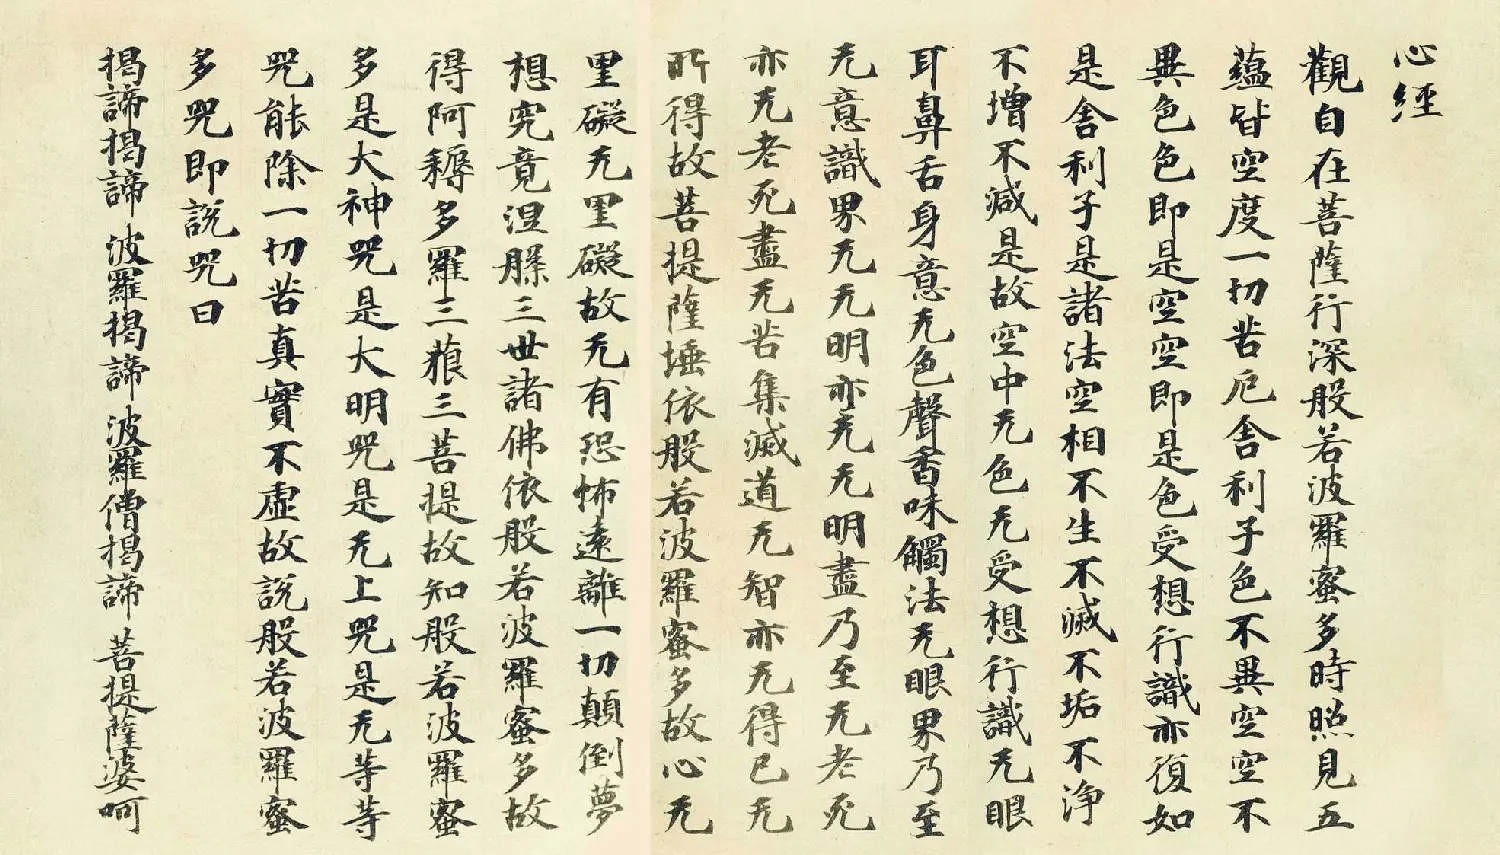 心經
觀自在菩薩行深般若波羅蜜多時照見五
蘊皆空度一切苦厄舍利子色不異空空不
異色色即是空空即是色受想行識亦復如
是舍利子是諸法空相不生不滅不垢不淨
不增不減是故空中无色无受想行識无眼
耳鼻舌身意无色聲香味觸法无眼界乃至
无意識界无无明亦无无明盡乃至无老死
亦无老死盡无苦集滅道无智亦无得已无
所得故菩提薩埵依般若波羅蜜多故心无
罣礙无罣礙故无有恐怖遠離一切顛倒夢
想究竟涅槃三世諸佛依般若波羅蜜多故
得阿耨多羅三藐三菩提故知般若波羅蜜
多是大神咒是大明咒是无上咒是无等等
咒能除一切苦真實不虛故說般若波羅蜜
多咒即說咒曰
揭諦揭諦 波羅揭諦 波羅羅僧揭諦 菩提薩婆呵